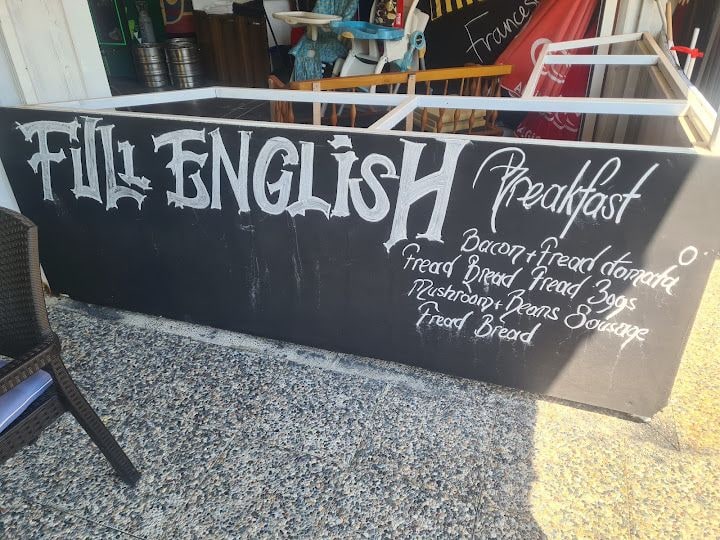 Frances
FULL ENGLISH Breakfast
Bacon + Fread tomata
Fread Bread Fread Eggs
Mushroom + Beans Sousage
Fread Breard